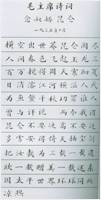 毛主席诗词
念奴娇 昆仑
一九三五年十月
横空出世莽昆仑阅尽
人间春色飞起玉龙三
百万搅得周天寒彻夏
日消溶江河横溢人或
为鱼鳖千秋功罪谁人
曾与评说而今我谓昆
仑不要这高不要这多
雪安得倚天抽宝剑把
汝裁为三截一截遗欧
一截赠美一截还东
国太平世界环球同此
凉热